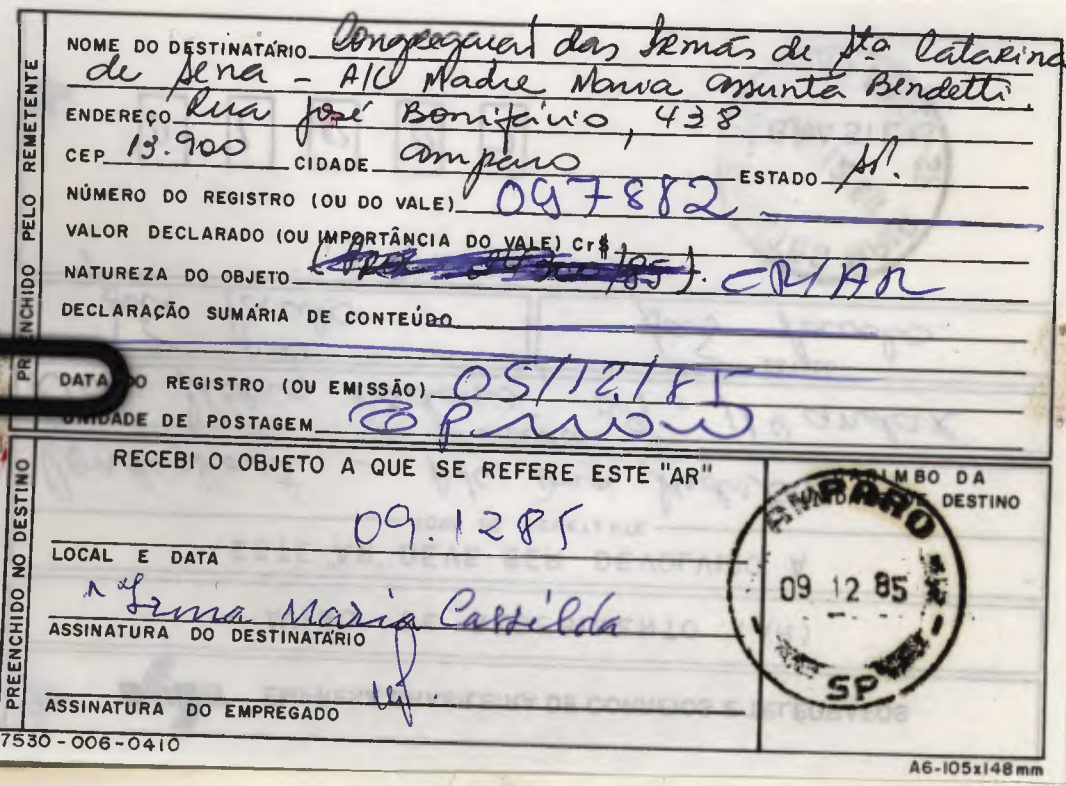 PREENCHIDO PELO REMETENTE
NOME DO DESTINATÁRIO Congregação das Irmãs de Sta Catarina
de Sena - A/C Madre Maria Assunta Bendetti.
ENDEREÇO Rua José Bonifácio, 438
CEP 13.900 CIDADE Amparo ESTADO SP.
NÚMERO DO REGISTRO (OU DO VALE) 097882
VALOR DECLARADO (OU IMPORTÂNCIA DO VALE) Cr$
NATUREZA DO OBJETO CR/AR
DECLARAÇÃO SUMÁRIA DE CONTEÚDO
DATA DO REGISTRO (OU EMISSÃO) 05/12/85
UNIDADE DE POSTAGEM
PREENCHIDO NO DESTINO
RECEBI O OBJETO A QUE SE REFERE ESTE "AR"
CARIMBO DA
UNIDADE DE DESTINO
09.1285
LOCAL E DATA
Irmã Maria Cassilda
ASSINATURA DO DESTINATÁRIO
ASSINATURA DO EMPREGADO
AMPARO
09 12 85
SP
7530-006-0410
A6-105x148mm